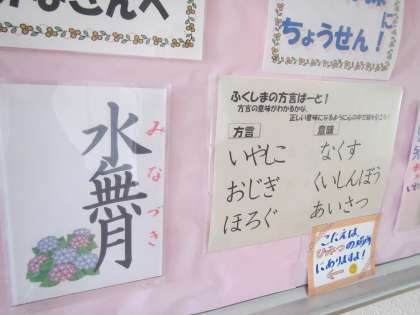 みなさんへ
に
ちょうせん！
水無月
みなづき
ふくしまの方言ぱーと1
方言の意味がわかるかな。
正しい意味になるように心の中で線を引こう！
方言 意味
いやしこ なくす
おじぎ くいしんぼう
ほろぐ あいさつ
こたえは
ひみつの
にありますよ！